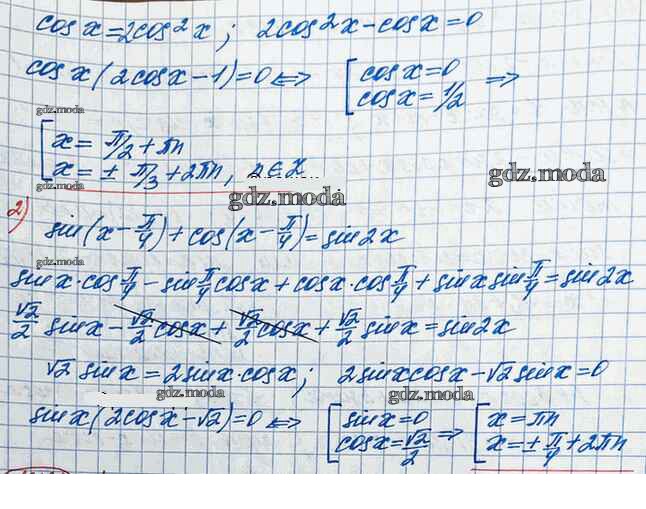 cos x = 2cos²x ; 2cos²x - cos x = 0
cos x (2cos x - 1) = 0 ⟺ [ cos x = 0 ⟹
cos x = 1/2
gdz.moda
[ x = π/2 + πn
x = ± π/3 + 2πn, n ∈ Z
gdz.moda
gdz.moda
gdz.moda
2)
sin(x - π/4) + cos(x - π/4) = sin 2x
gdz.moda
sin x · cos π/4 - sin π/4 cos x + cos x · cos π/4 + sin x sin π/4 = sin 2x
√2/2 sin x - √2/2 cos x + √2/2 cos x + √2/2 sin x = sin 2x
√2 sin x = 2 sin x · cos x ; 2 sin x cos x - √2 sin x = 0
gdz.moda
gdz.moda
sin x (2cos x - √2) = 0 ⟺ [ sin x = 0 ⟹ [ x = πn
cos x = √2/2 x = ± π/4 + 2πn